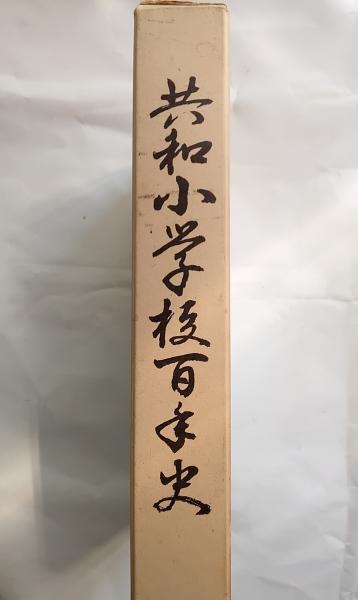 共和小学校百年史